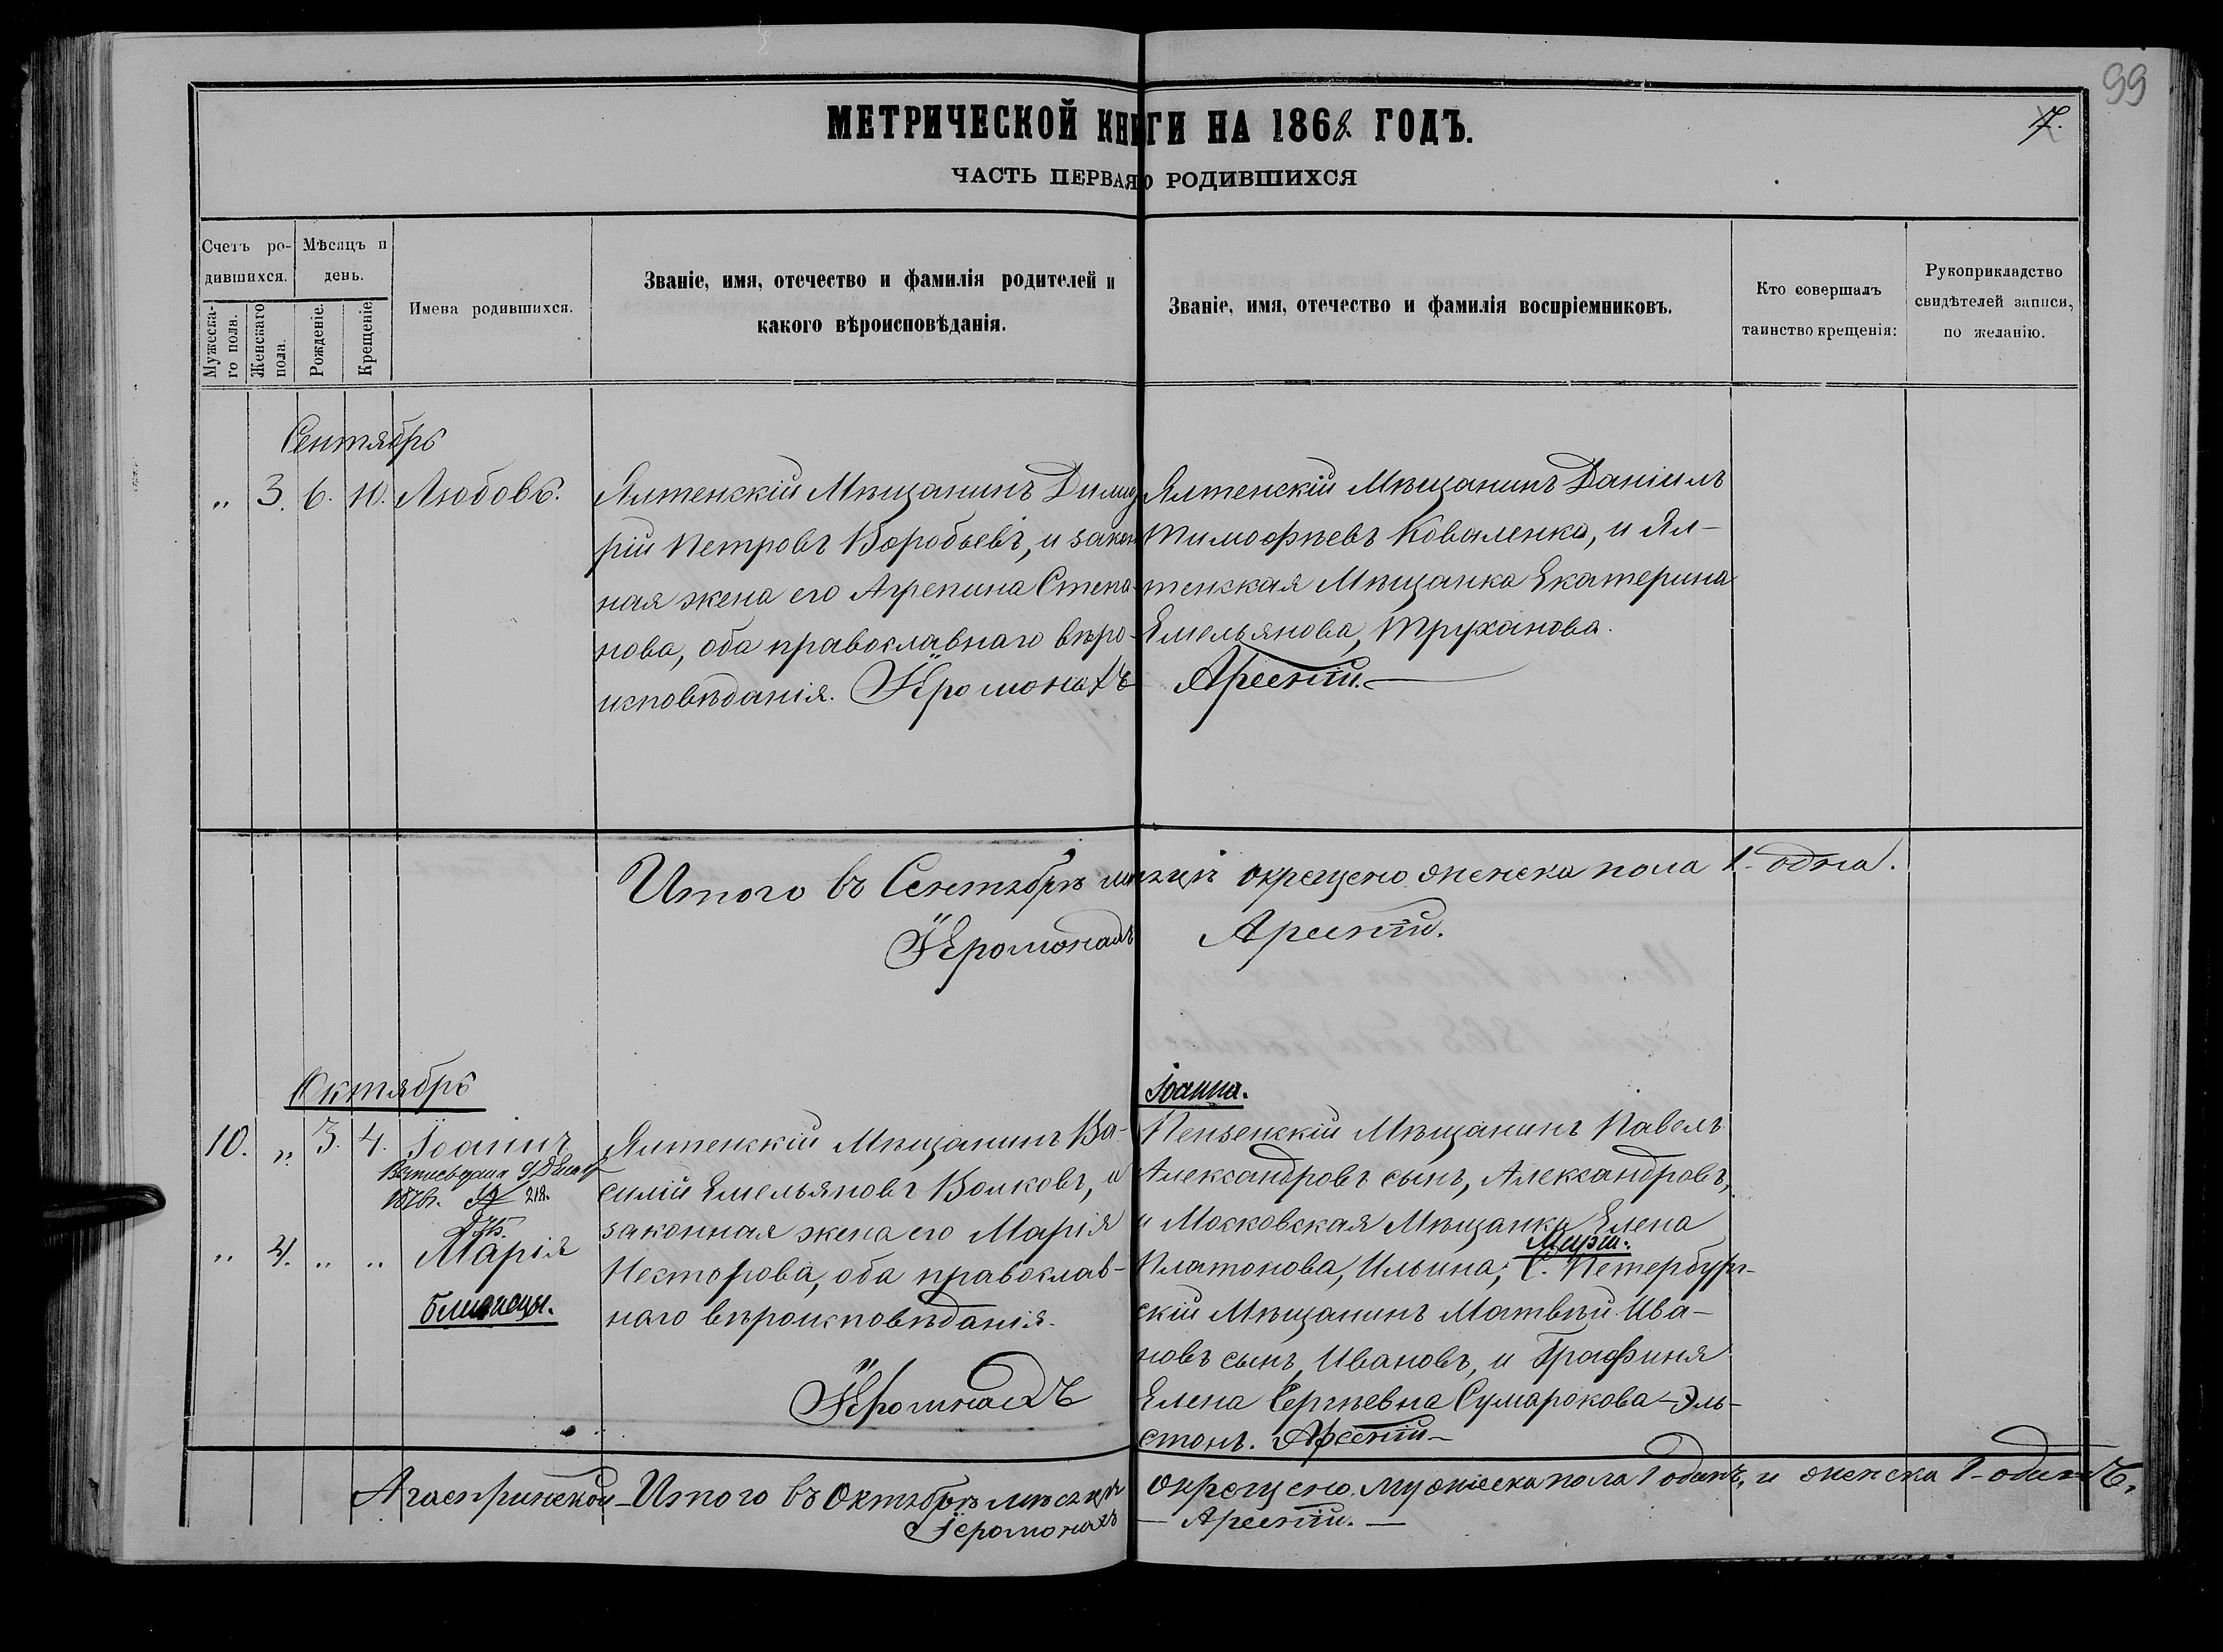 99
МЕТРИЧЕСКОЙ КНИГИ НА 1868 ГОДЪ.
7.
ЧАСТЬ ПЕРВАЯ О РОДИВШИХСЯ
Счетъ ро-
дившихся.
Мужеска-
го пола.
Женскаго
пола.
Мѣсяцъ и
день.
Рожденіе.
Крещеніе
Имена родившихся.
Званіе, имя, отечество и фамилія родителей и
какого вѣроисповѣданія.
Званіе, имя, отечество и фамилія воспріемниковъ.
Кто совершалъ
таинство крещенія:
Рукоприкладство
свидѣтелей записи,
по желанію.
Сентябрь
„ 3. 6. 10. Любовь.
Ялтенскій Мѣщанинъ Димит
рій Петровъ Воробьевъ, и закон
ная жена его Агрепина Степа-
нова, оба православнаго вѣро-
исповѣданія. Іеромонахъ
Ялтенскій Мѣщанинъ Даніилъ
Тимофѣевъ Коваленко, и Ял-
тенская Мѣщанка Екатерина
Емельянова, Труханова.
Арсеній.
Итого въ Сентябрѣ мѣсяцѣ окрещено женска пола 1-одна.
Іеромонахъ Арсеній.
Октябрь
10. „ 3. 4. Іоаннъ
218.
„ 4. „ „ Марія
близнецы.
Ялтенскій Мѣщанинъ Ва-
силій Емельяновъ Волковъ, и
законная жена его Марія
Несторова, оба православ-
наго вѣроисповѣданія.
Іеромонахъ
Іоанна.
Пензенскій Мѣщанинъ Павелъ
Александровъ сынъ, Александровъ,
и Московская Мѣщанка Елена
Маріи:
Платонова, Ильина; С. Петербург-
скій Мѣщанинъ Матвѣй Ива-
новъ сынъ, Ивановъ, и Графиня
Елена Сергѣевна Сумарокова-Эль-
стонъ. Арсеній
Итого въ Октябрѣ мѣсяцѣ окрещено мужеска пола 1 одинъ, и женска 1-одинъ.
Іеромонахъ — Арсеній. —